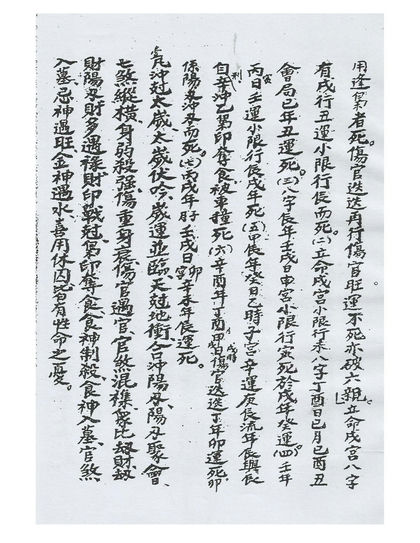 用逢梟者死。傷官迭迭再行傷官旺運不死亦破六親。立命戌宮八字
有戌行丑運小限行辰而死。(二)立命戌宮小限行未八字丁酉日巳月己酉丑
會局己年丑運死。(三)八字辰年壬戌日申宮小限行寅死於戌年癸運(四)壬年
丙日壬運小限行辰戌年死(五)甲辰年癸日乙時子宮辛運庚辰流年辰與辰
自刑辛沖乙梟印奪食被車撞死(六)辛酉年丁酉傷官迭迭丁年卯運死卯
係陽刃沖刃而死。(七)丙戌年壬戌日卯宮辛未年辰運死。
凡沖尅太歲太歲伏吟歲運並臨天尅地衝合沖陽刃陽刃聚會、
七煞縱橫身弱殺強傷重身衰傷官遇官官煞混襍眾比刼財刼
財陽刃財多遇祿財印戰尅梟印奪食食神制殺食神入墓官煞
入墓忌神遇旺金神遇水喜用休囚皆有性命之憂。